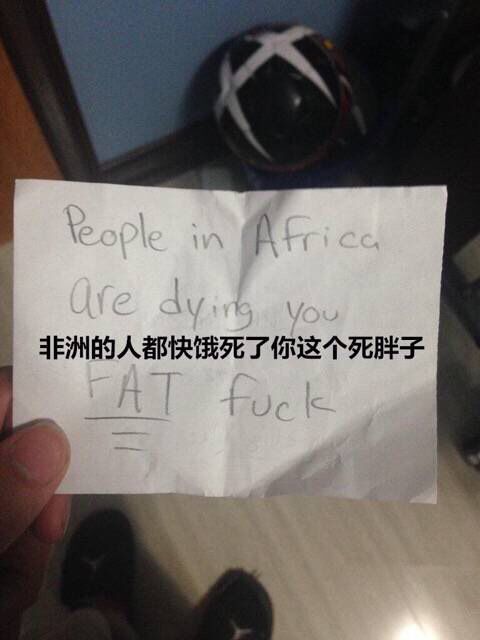 People in Africa
are dying you
非洲的人都快饿死了你这个死胖子
FAT fuck